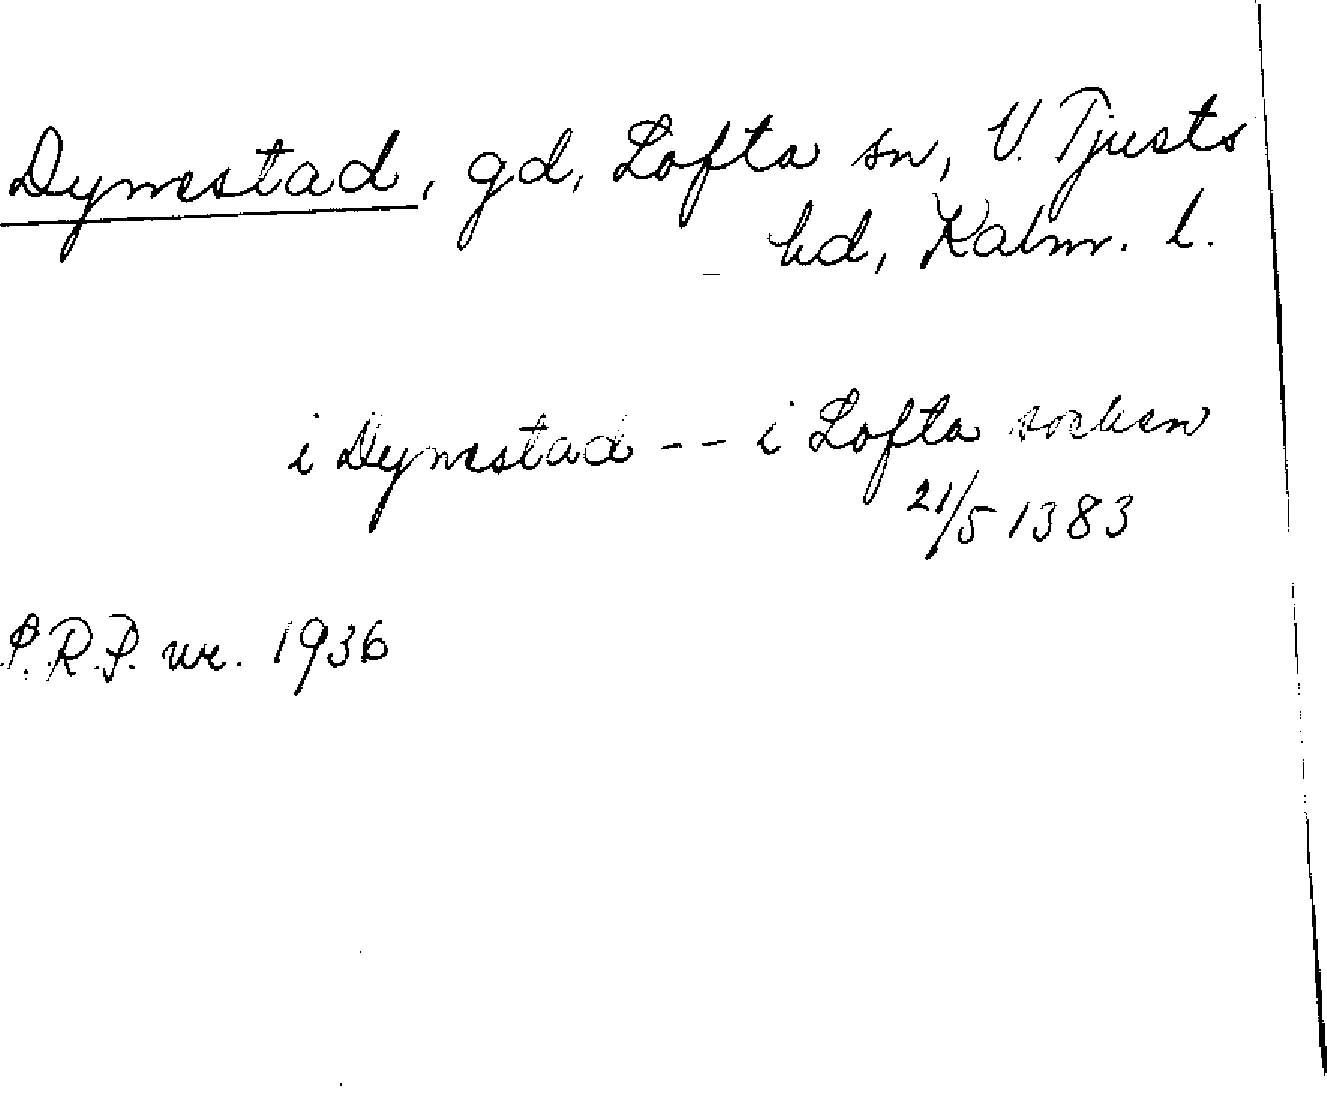 Dymestad, gd, Lofta sn, V. Tjusts
hd, Kalm. l.
i Dymestad -- i Lofta socken
21/5 1383
P.R.P. nr. 1936